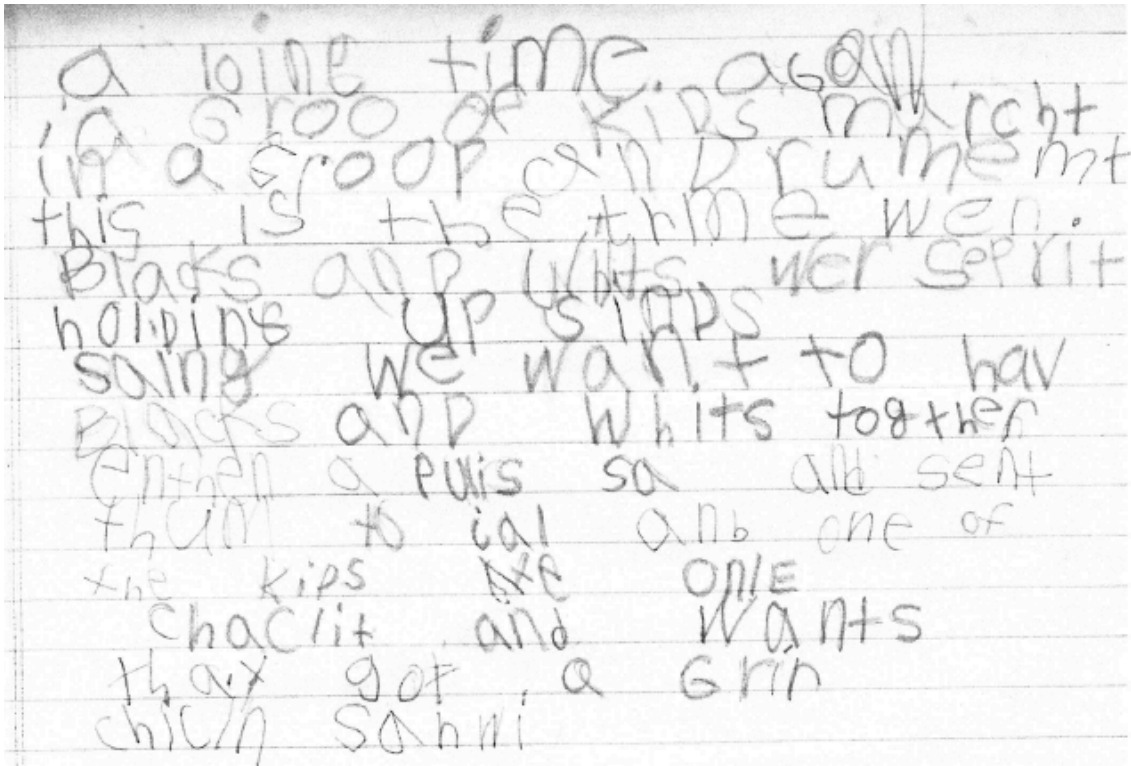 a loing time. agan
in a Groo of Kids marcht
in a Groop and Drumemt
this is the thme wen.
Blacks anD Whits wer seprit
holiDing up sinDs
saing we want to hav
Blacks anD Whits together
enthen a pulis sa and sent
thum to ial and one of
the kiDs ate onlE
chaclit and wants
thay got a Grin
chicin sanwi